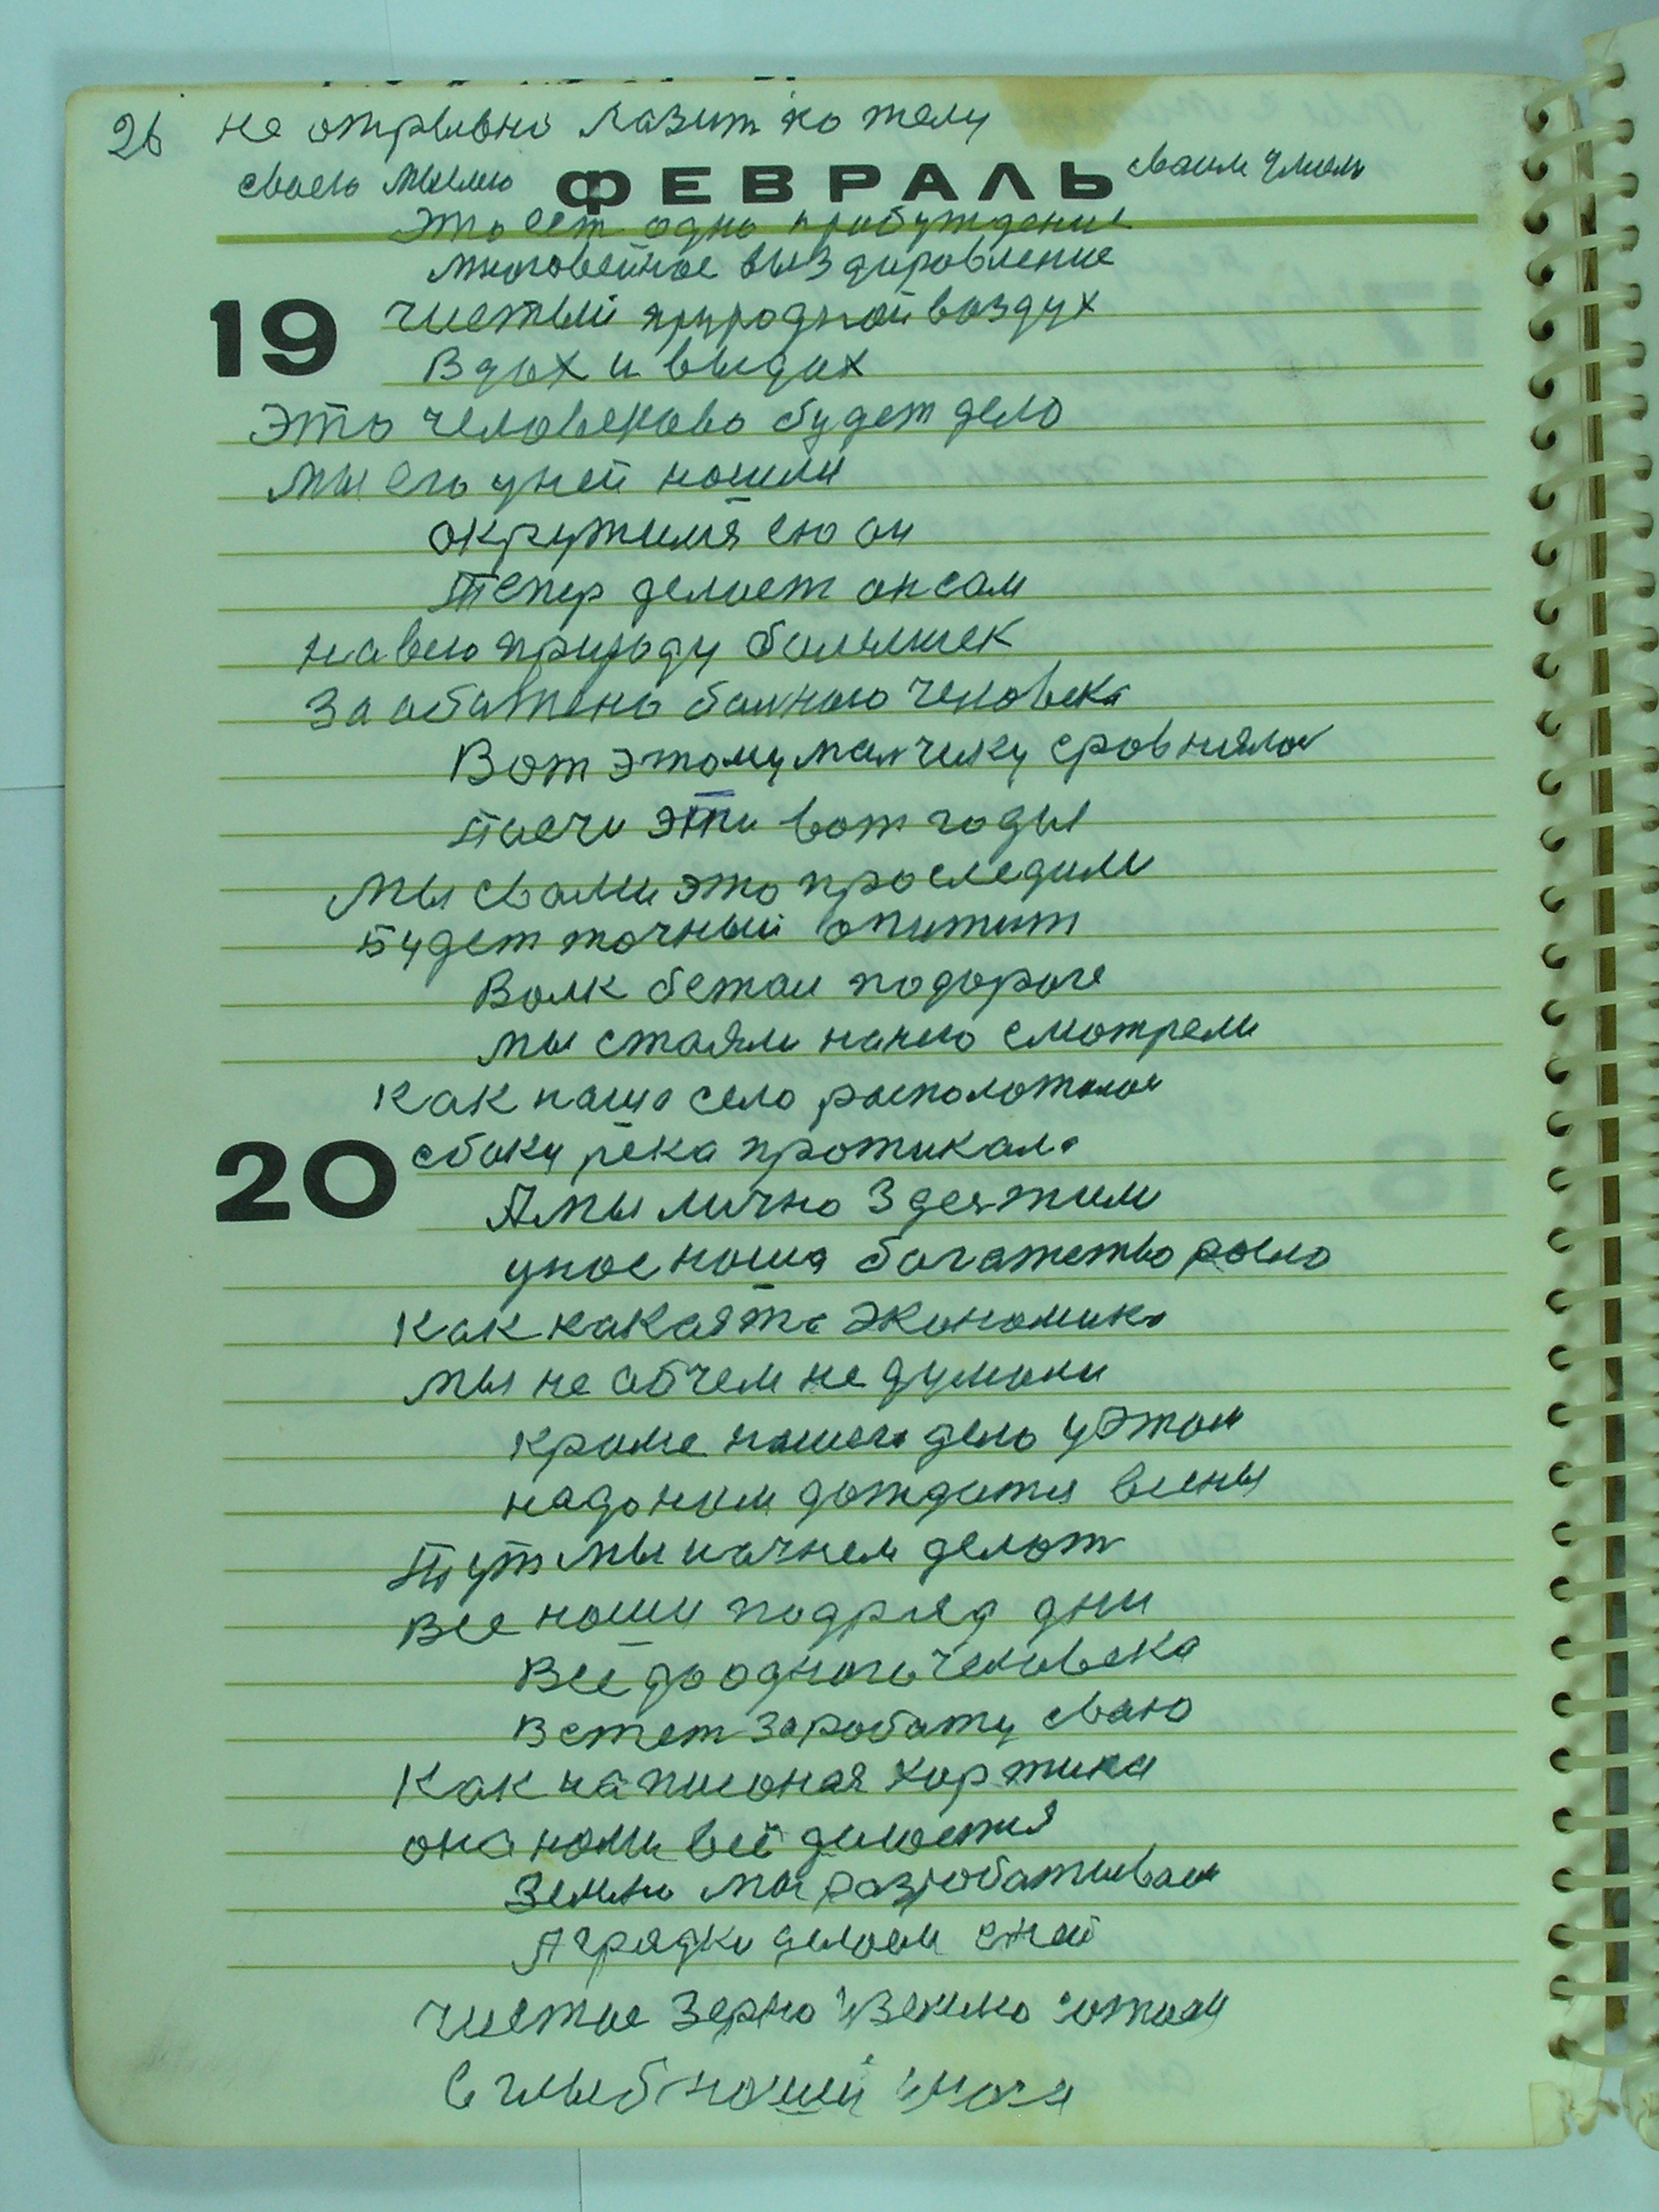 26 не отрывно лазит по телу
своею мыслю ФЕВРАЛЬ своим умом
Это ест одно прабуждение
многовейное выздоровление
19 чистый природной воздух
Вдох и выдох
Это человеково будет дело
мы его у ней нашли
окружился ею он
Тепер делает он сам
на всю природу
За обижено болного человека
Вот этому малчику сровнялос
тисечи эти вот годы
мы свами это проследили
Будет точный
Волк бежал подороге
мы стаяли нанего смотрели
Как наше село росположилос
20 сбоку река протикала
Амы лично здес жили
унас наша богатство росло
Как какаята экономика
мы не обчем не думали
кроме нашего дело уэтом
надо нам дождатся весны
Тут мы начнем делат
Все наши подряд дни
Всё до одного человека
заработу сваю
Как написоная картина
она нами всё делается
Землю мы разробатываем
Агрядки делаем сней
чистое зерно